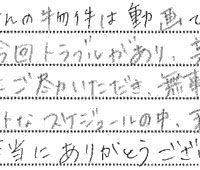 んの物件は動画で
今回トラブルがあり、
ご尽力いただき、無事
トなスケジュールの中、
当にありがとうござい